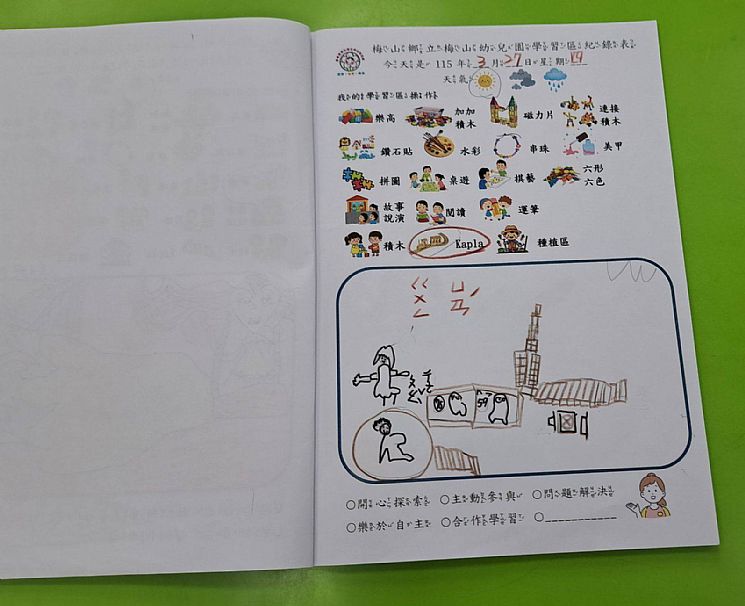 梅山鄉立梅山幼兒園學習區紀錄表
今天是115年3月27日星期
天氣
我的學習區操作
樂高 加加積木 磁力片 連接積木
鑽石貼 水彩 串珠 美甲
拼圖 桌遊 棋藝 六形六色
故事說演 閱讀 運筆
積木 Kapla 種植區
ㄍㄨㄥ ㄩㄢˊ
○開心探索 ○主動參與 ○問題解決
○樂於自主 ○合作學習 ○____________